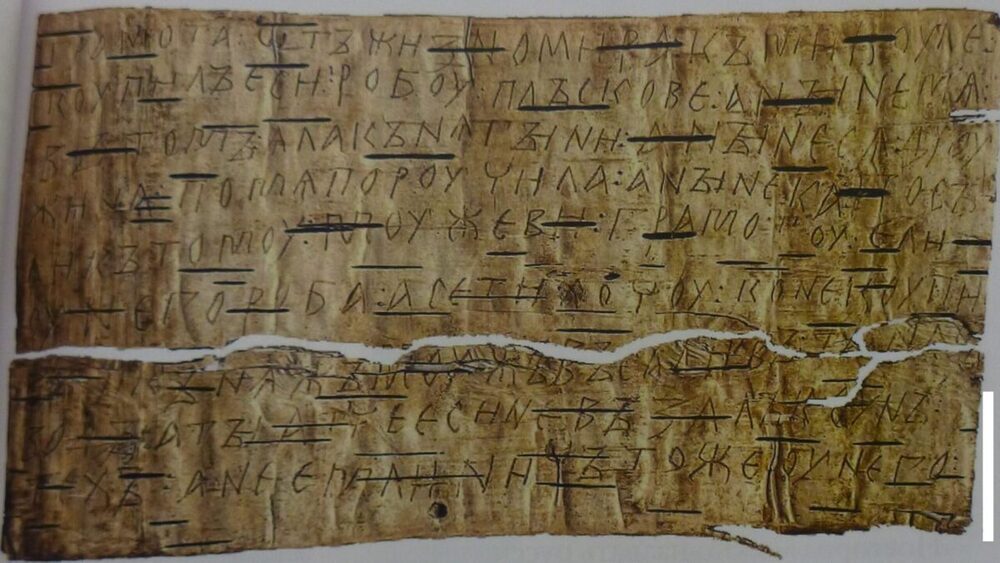 грамота : ѿтъ жизномира : къ микоуле :
коупилъ еси : робоу : плъскове : а ныне мѧ :
въ томъ : ѧла кънѧгыни : а ныне сѧ дроу
жина : по мѧ пороучила : а ныне ка : посъ
ли къ томоу : моужеви : грамотоу : ели
оу него роба : а се ти хочоу : коне коупи
въ : и кънѧжъ моужъ въсадивъ : та на съ
воды : а ты атче еси не възалъ коунъ :
техъ : а не емли : ничъто же оу него :